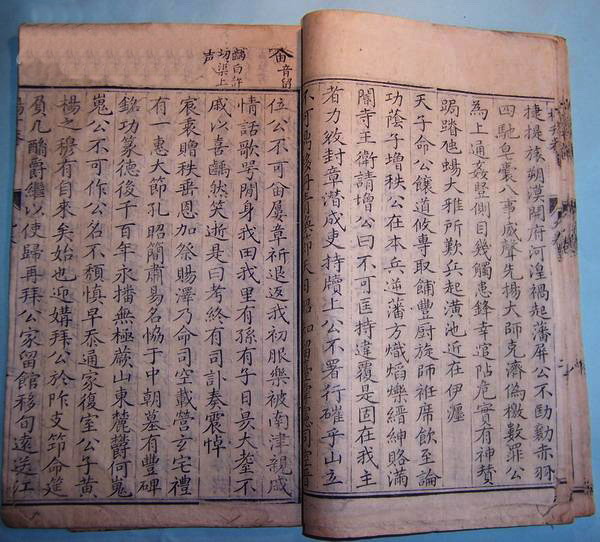 捷提旅朔漠開府河湟禍起藩屏公不動勦赤羽
四馳皂囊八事威聲先揚大師克濟偽檄數罪公
為上通姦堅側目幾觸患鋒幸逭阽危實有神賛
跼蹐虺蜴大雅所歎兵起潢池近在伊瀍
天子命公饟道攸專取餔豐厨旋師袵席飲至論
功蔭子增秩公在本兵逆藩方熾焰爍縉紳賂滿
閽寺王衛請增公曰不可匡持違覆是固在我主
者力封章潛成吏持牘上公不署行確乎山立
不可
音留
百許
切渠上
声
位公不可畱屢章祈退返我初服樂被南津親戚
情話歌咢開身我田我里有孫有子日昃大耋不
戚以喜然笑逝是曰考終有司訃奏震悼
宸衷贈秩垂恩加祭賜澤乃命司空載營玄宅禮
有一惠大節孔昭簡肅易名恊于中朝墓有豐碑
銘功德後千百年永播無極蕨山東麓欝何嵬
嵬公不可作公名不頹慎早忝通家復室公子黄
楊之穆有自來矣始也迎媾拜公於阼支笻命莚
几酳爵繼以使歸再拜公家留館移旬遠送江